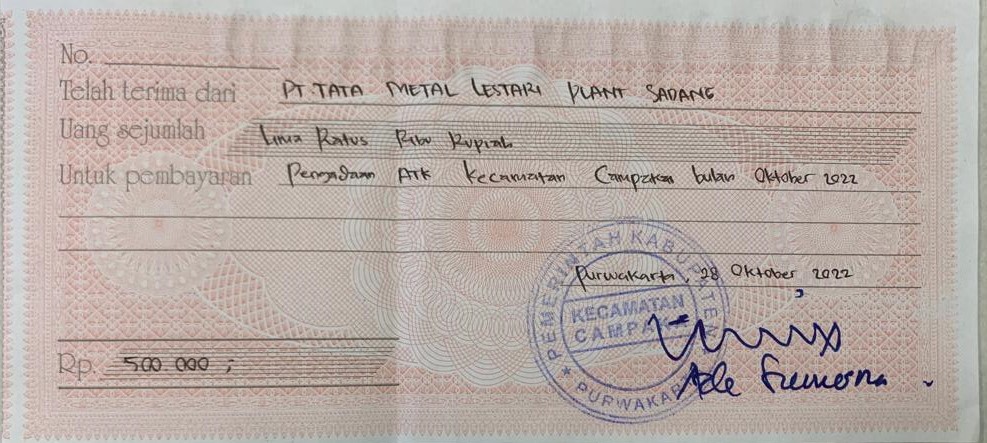 No.
Telah terima dari PT. TATA METAL LESTARI PLANT SADANG
Uang sejumlah Lima Ratus Ribu Rupiah
Untuk pembayaran Pengadaan ATK Kecamatan Campaka bulan Oktober 2022
Purwakarta, 28 Oktober 2022
PEMERINTAH KABUPATEN
KECAMATAN
CAMPAKA
PURWAKARTA
Rp. 500.000 ;
Ade